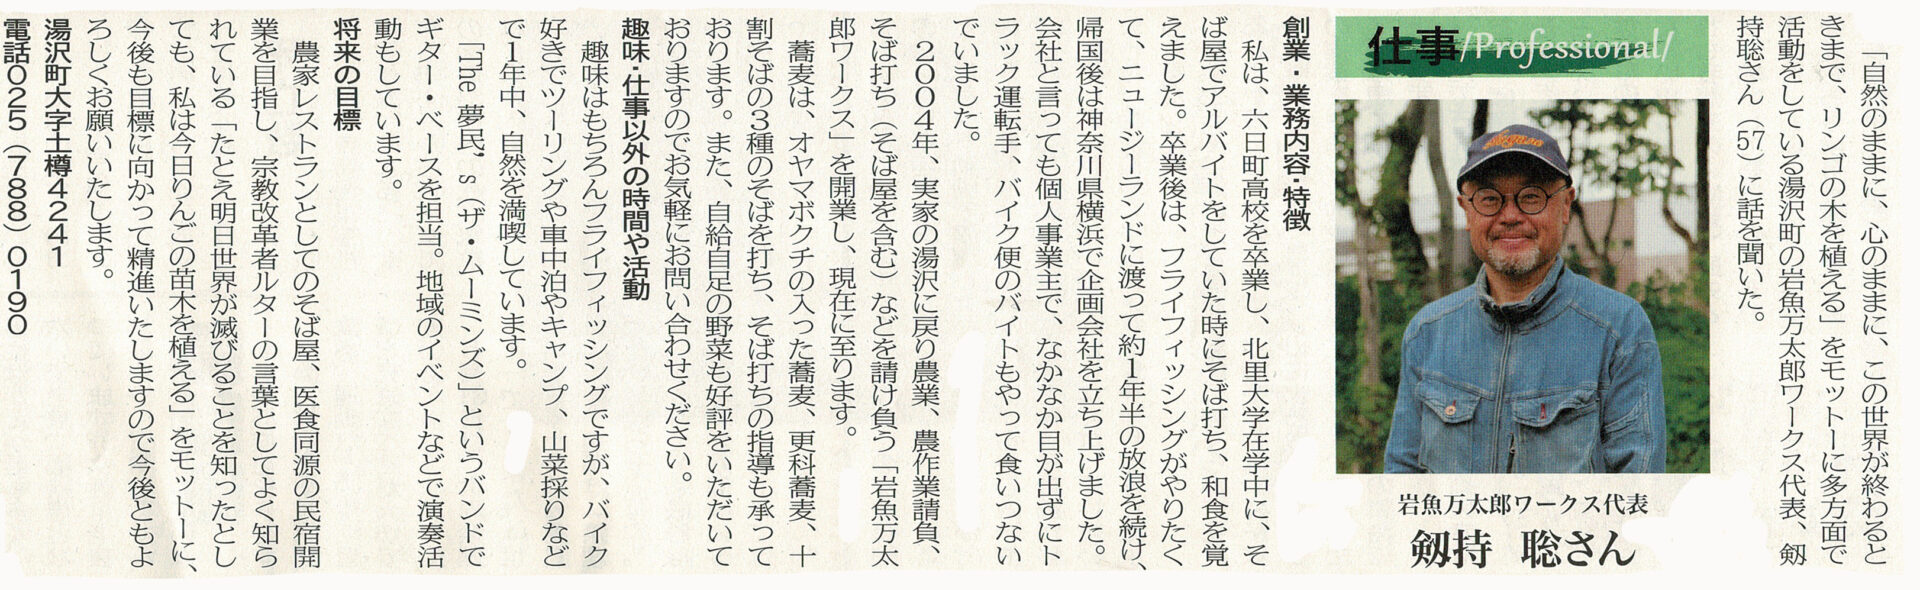 「自然のままに、心のままに、この世界が終わると
きまで、リンゴの木を植える」をモットーに多方面で
活動をしている湯沢町の岩魚万太郎ワークス代表、剱
持聡さん（57）に話を聞いた。
仕事/Professional/
岩魚万太郎ワークス代表
剱持 聡さん
創業・業務内容・特徴
私は、六日町高校を卒業し、北里大学在学中に、そ
ば屋でアルバイトをしていた時にそば打ち、和食を覚
えました。卒業後は、フライフィッシングがやりたく
て、ニュージーランドに渡って約1年半の放浪を続け、
帰国後は神奈川県横浜で企画会社を立ち上げました。
会社と言っても個人事業主で、なかなか目が出ずにト
ラック運転手、バイク便のバイトもやって食いつない
でいました。
2004年、実家の湯沢に戻り農業、農作業請負、
そば打ち（そば屋を含む）などを請け負う「岩魚万太
郎ワークス」を開業し、現在に至ります。
蕎麦は、オヤマボクチの入った蕎麦、更科蕎麦、十
割そばの3種のそばを打ち、そば打ちの指導も承って
おります。また、自給自足の野菜も好評をいただいて
おりますのでお気軽にお問い合わせください。
趣味・仕事以外の時間や活動
趣味はもちろんフライフィッシングですが、バイク
好きでツーリングや車中泊やキャンプ、山菜採りなど
で1年中、自然を満喫しています。
「The 夢民’s（ザ・ムーミンズ）」というバンドで
ギター・ベースを担当。地域のイベントなどで演奏活
動もしています。
将来の目標
農家レストランとしてのそば屋、医食同源の民宿開
業を目指し、宗教改革者ルターの言葉としてよく知ら
れている「たとえ明日世界が滅びることを知ったとし
ても、私は今日りんごの苗木を植える」をモットーに、
今後も目標に向かって精進いたしますので今後ともよ
ろしくお願いいたします。
湯沢町大字土樽4241
電話025（788）0190